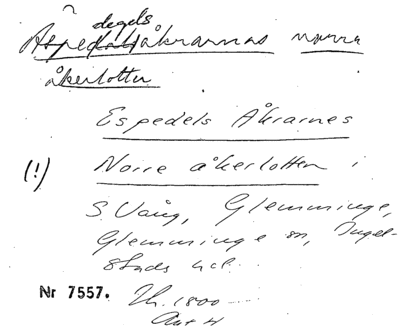 degels
Aspedelsåkrarnas norra
åkerlotten
Espedels Åkrarnes
(!) Norre åkerlotten i
S. Vång, Glemminge,
Glemminge sn, Ingel-
stads hd.
Nr 7557. Th. 1800
Akt 4